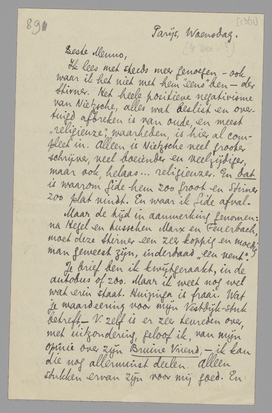 891
Parijs, Woensdag.
Beste Menno,
Ik lees met steeds meer genoegen – ook
waar ik het niet met hem "eens" ben – de
Stirner. Het heele positieve negativisme
van Nietzsche, alles wat beslist en over-
tuigd afbreken is van oude, en meest
"religieuze", waarheden, is hier al com-
pleet in. Alleen is Nietzsche veel grooter
schrijver, veel boeiender en veelzijdiger,
maar ook, helaas... religieuzer. En dat
is waarom Gide hem zoo groot en Stirner
zoo plat vindt. En waar ik Gide afval.
Maar de tijd in aanmerking genomen:
na Hegel en tusschen Marx en Feuerbach,
moet deze Stirner een zeer koppig en moedig
man geweest zijn, inderdaad "een vent".
Je brief ben ik kwijtgeraakt, in de
autobus of zoo. Maar ik weet nog wel
wat erin staat. Huizinga is fraai. Wat
je waardeering voor mijn Vestdijk-stuk
betreft – V. zelf is er zeer tevreden over,
met uitzondering, geloof ik, van mijn
opinie over zijn Bruine Vriend, – ik kan
die nog allerminst deelen. Alleen
stukken ervan zijn voor mij goed. En